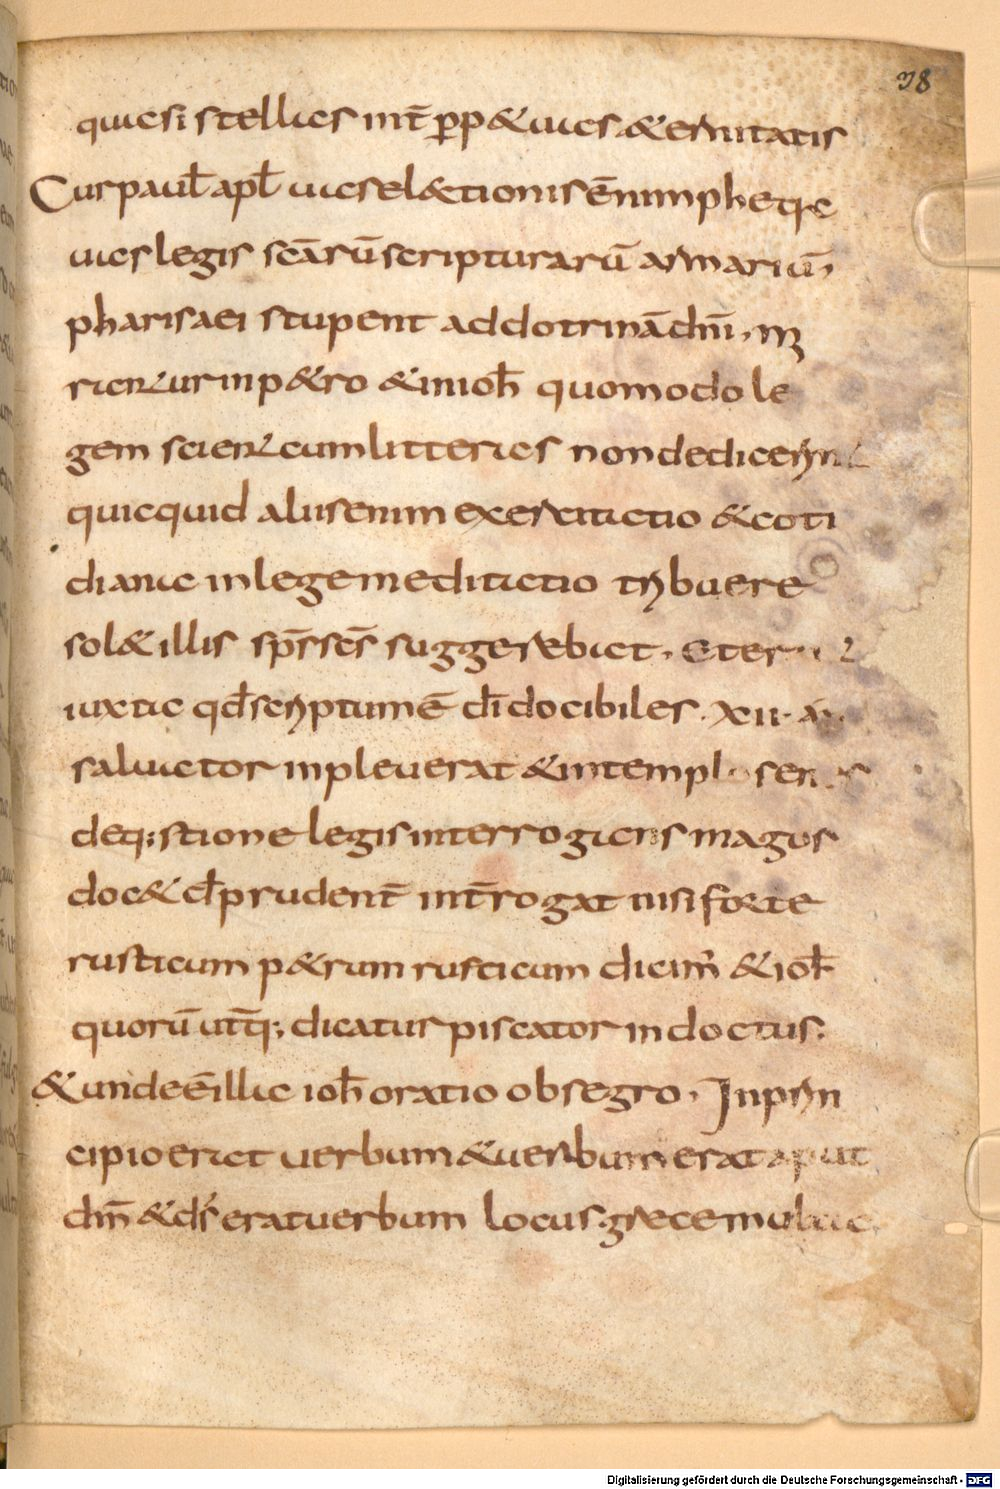 38
quasi stellas int̄ pp&uas & ernitatis
Cur paul̄ apl̄ uas el&tionis ē nim phetq: c
uas legis scārū scripturarū armariū,
pharisaei stupent ad dotrinā dn̄i, m
rientur in p&ro & in ioh̄ quomodo le
gem scient cum litteras non dedicerin
quicquid aliis enim exercitatio & coti
diana in lege meditatio tribuere
sol& illis sp̄s sc̄s suggerebat. Et er
iuxta qd̄ scriptum ē dī docibiles. XII. an
saluator inpleuerat & in templo senes
de q:stione legis interrogans magis
doc& d̄ prudent̄ int̄rogat nisi forte
rusticum p&rum rusticum dicim̄ & ioh̄
quorū utq:; dicatur piscator indoctus.
& unde ē illa ioh̄ oratio obsegro, In prin
cipio erat uerbum & uerbum erat aput
dm̄ & ds̄ erat uerbum locus. grece multa
Digitalisierung gefördert durch die Deutsche Forschungsgemeinschaft - DFG